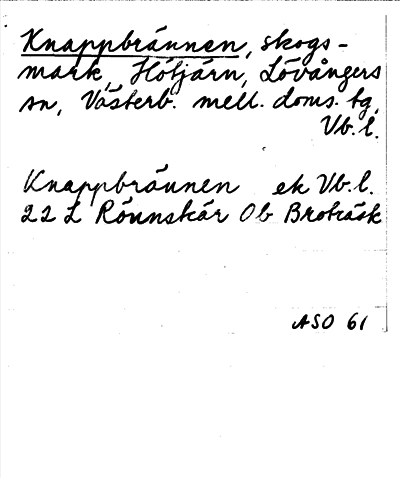 Knappbrännen, skogs-
mark, Hötjärn, Lövångers
sn, Västerb. mell. doms. tg,
Vb. l.
Knappbrännen ek Vb. l.
22 L Rönnskär Ob Broträsk
ASO 61